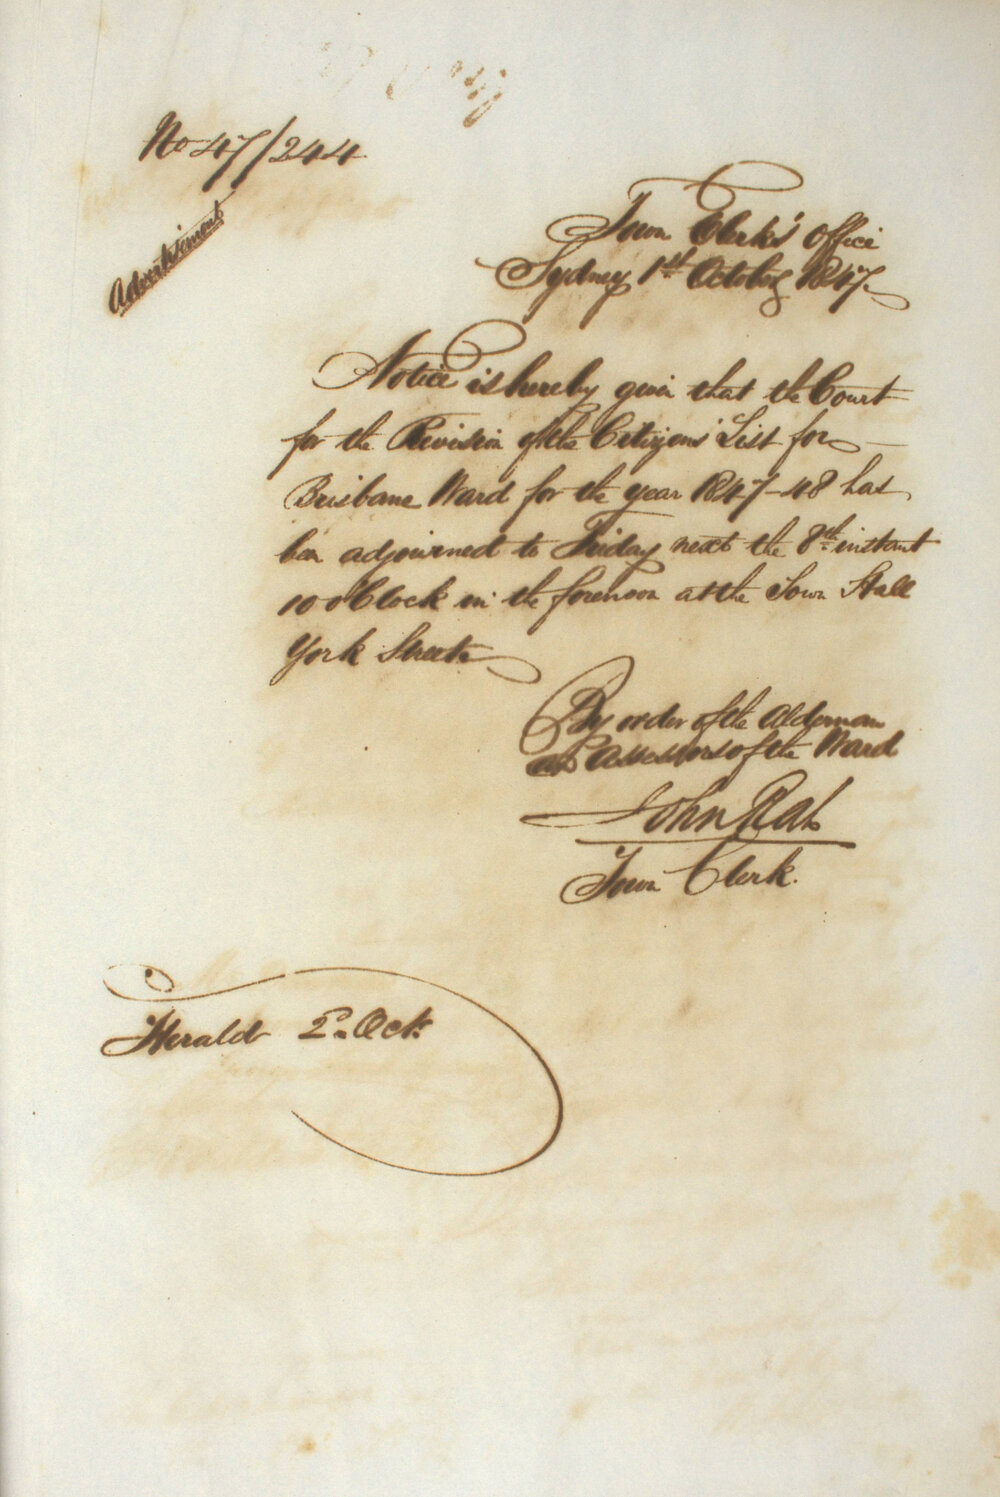 No 47/244
Advertisement
Town Clerks' Office
Sydney 1st October 1847.
Notice is hereby given that the Court
for the Revision of the Citizens' List for
Brisbane Ward for the year 1847-48 has
been adjourned to Friday next the 8th instant
10 oClock in the forenoon at the Town Hall
York Street.
By order of the Alderman
and Assessors of the Ward
John Rae
Town Clerk.
Herald 2. Oct.